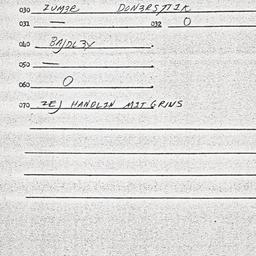 030 IUMƎR DONƎRSTIK
031 — 032 O
040 BAJDLƎY.
050 —.
060 O.
070 ZEJ HANDLIN MIT GRINS